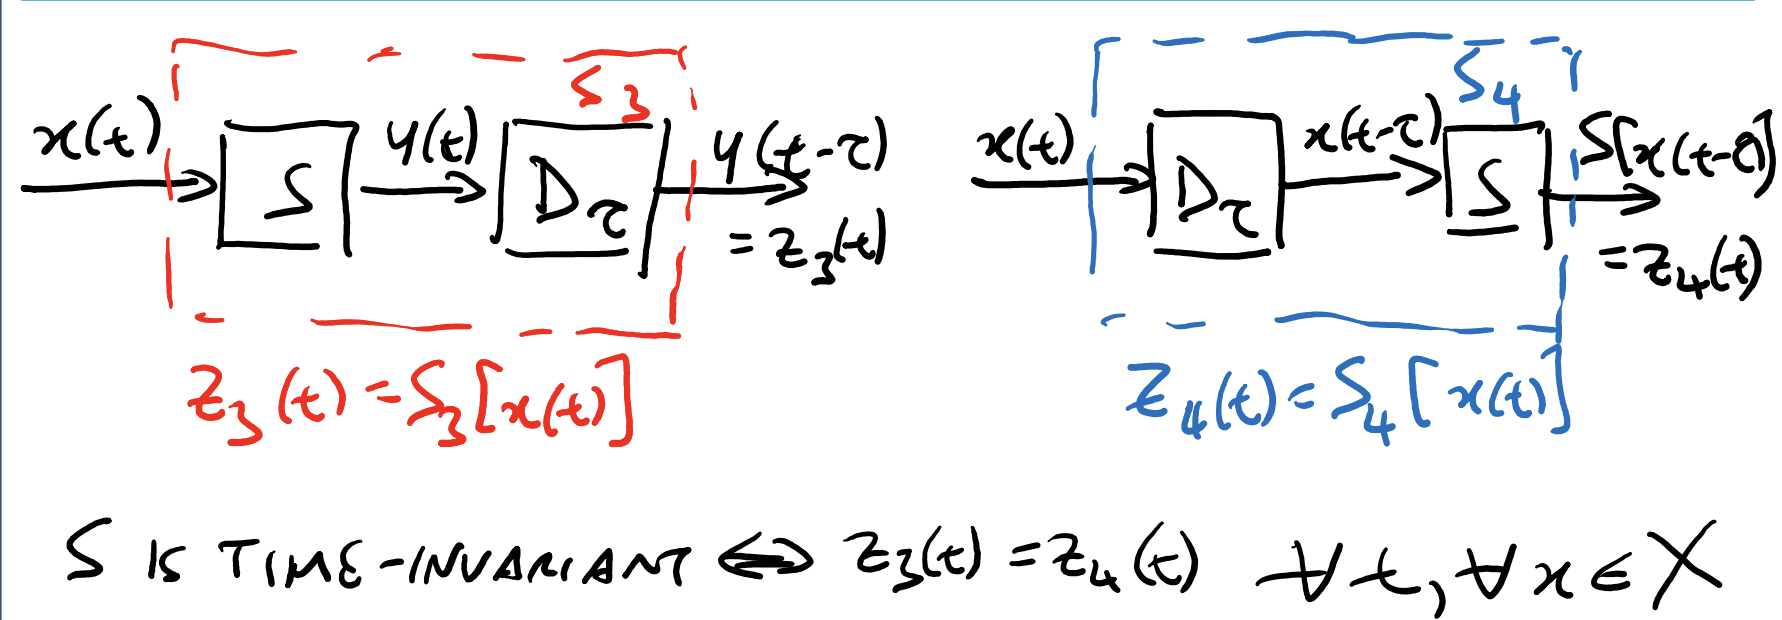 S₃
x(t) S y(t) D_τ y(t-τ)
= z₃(t)
z₃(t) = S₃[x(t)]
S₄
x(t) D_τ x(t-τ) S S[x(t-τ)]
= z₄(t)
z₄(t) = S₄[x(t)]
S IS TIME-INVARIANT ⟺ z₃(t) = z₄(t) ∀t, ∀x∈X